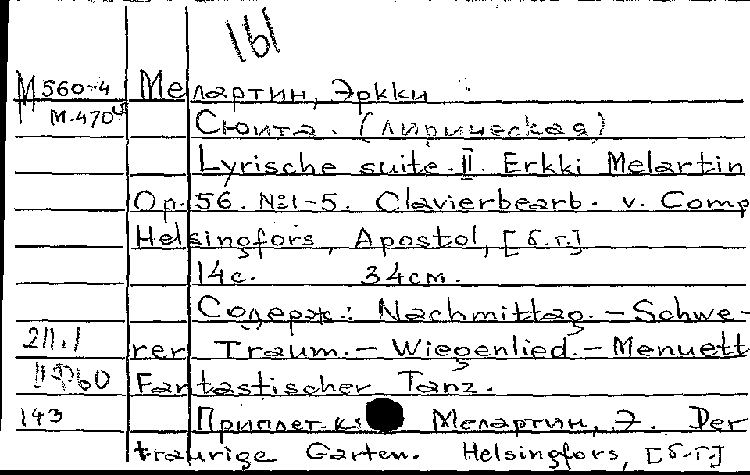 161
М 560-4 Мелартин, Эркки
М-470 Сюита. (лирическая)
Lyrische suite. II. Erkki Melartin
Op. 56. №1-5. Clavierbearb. v. Comp
Helsingfors, Apostol, [б.г.]
14с. 34см.
Содерж.: Nachmittag. – Schwe-
211.1 rer Traum. – Wiegenlied. – Menuett
Fantastischer Tanz.
143 Приплет к: Мелартин, Э. Der
traurige Garten. Helsingfors, [б.г.]